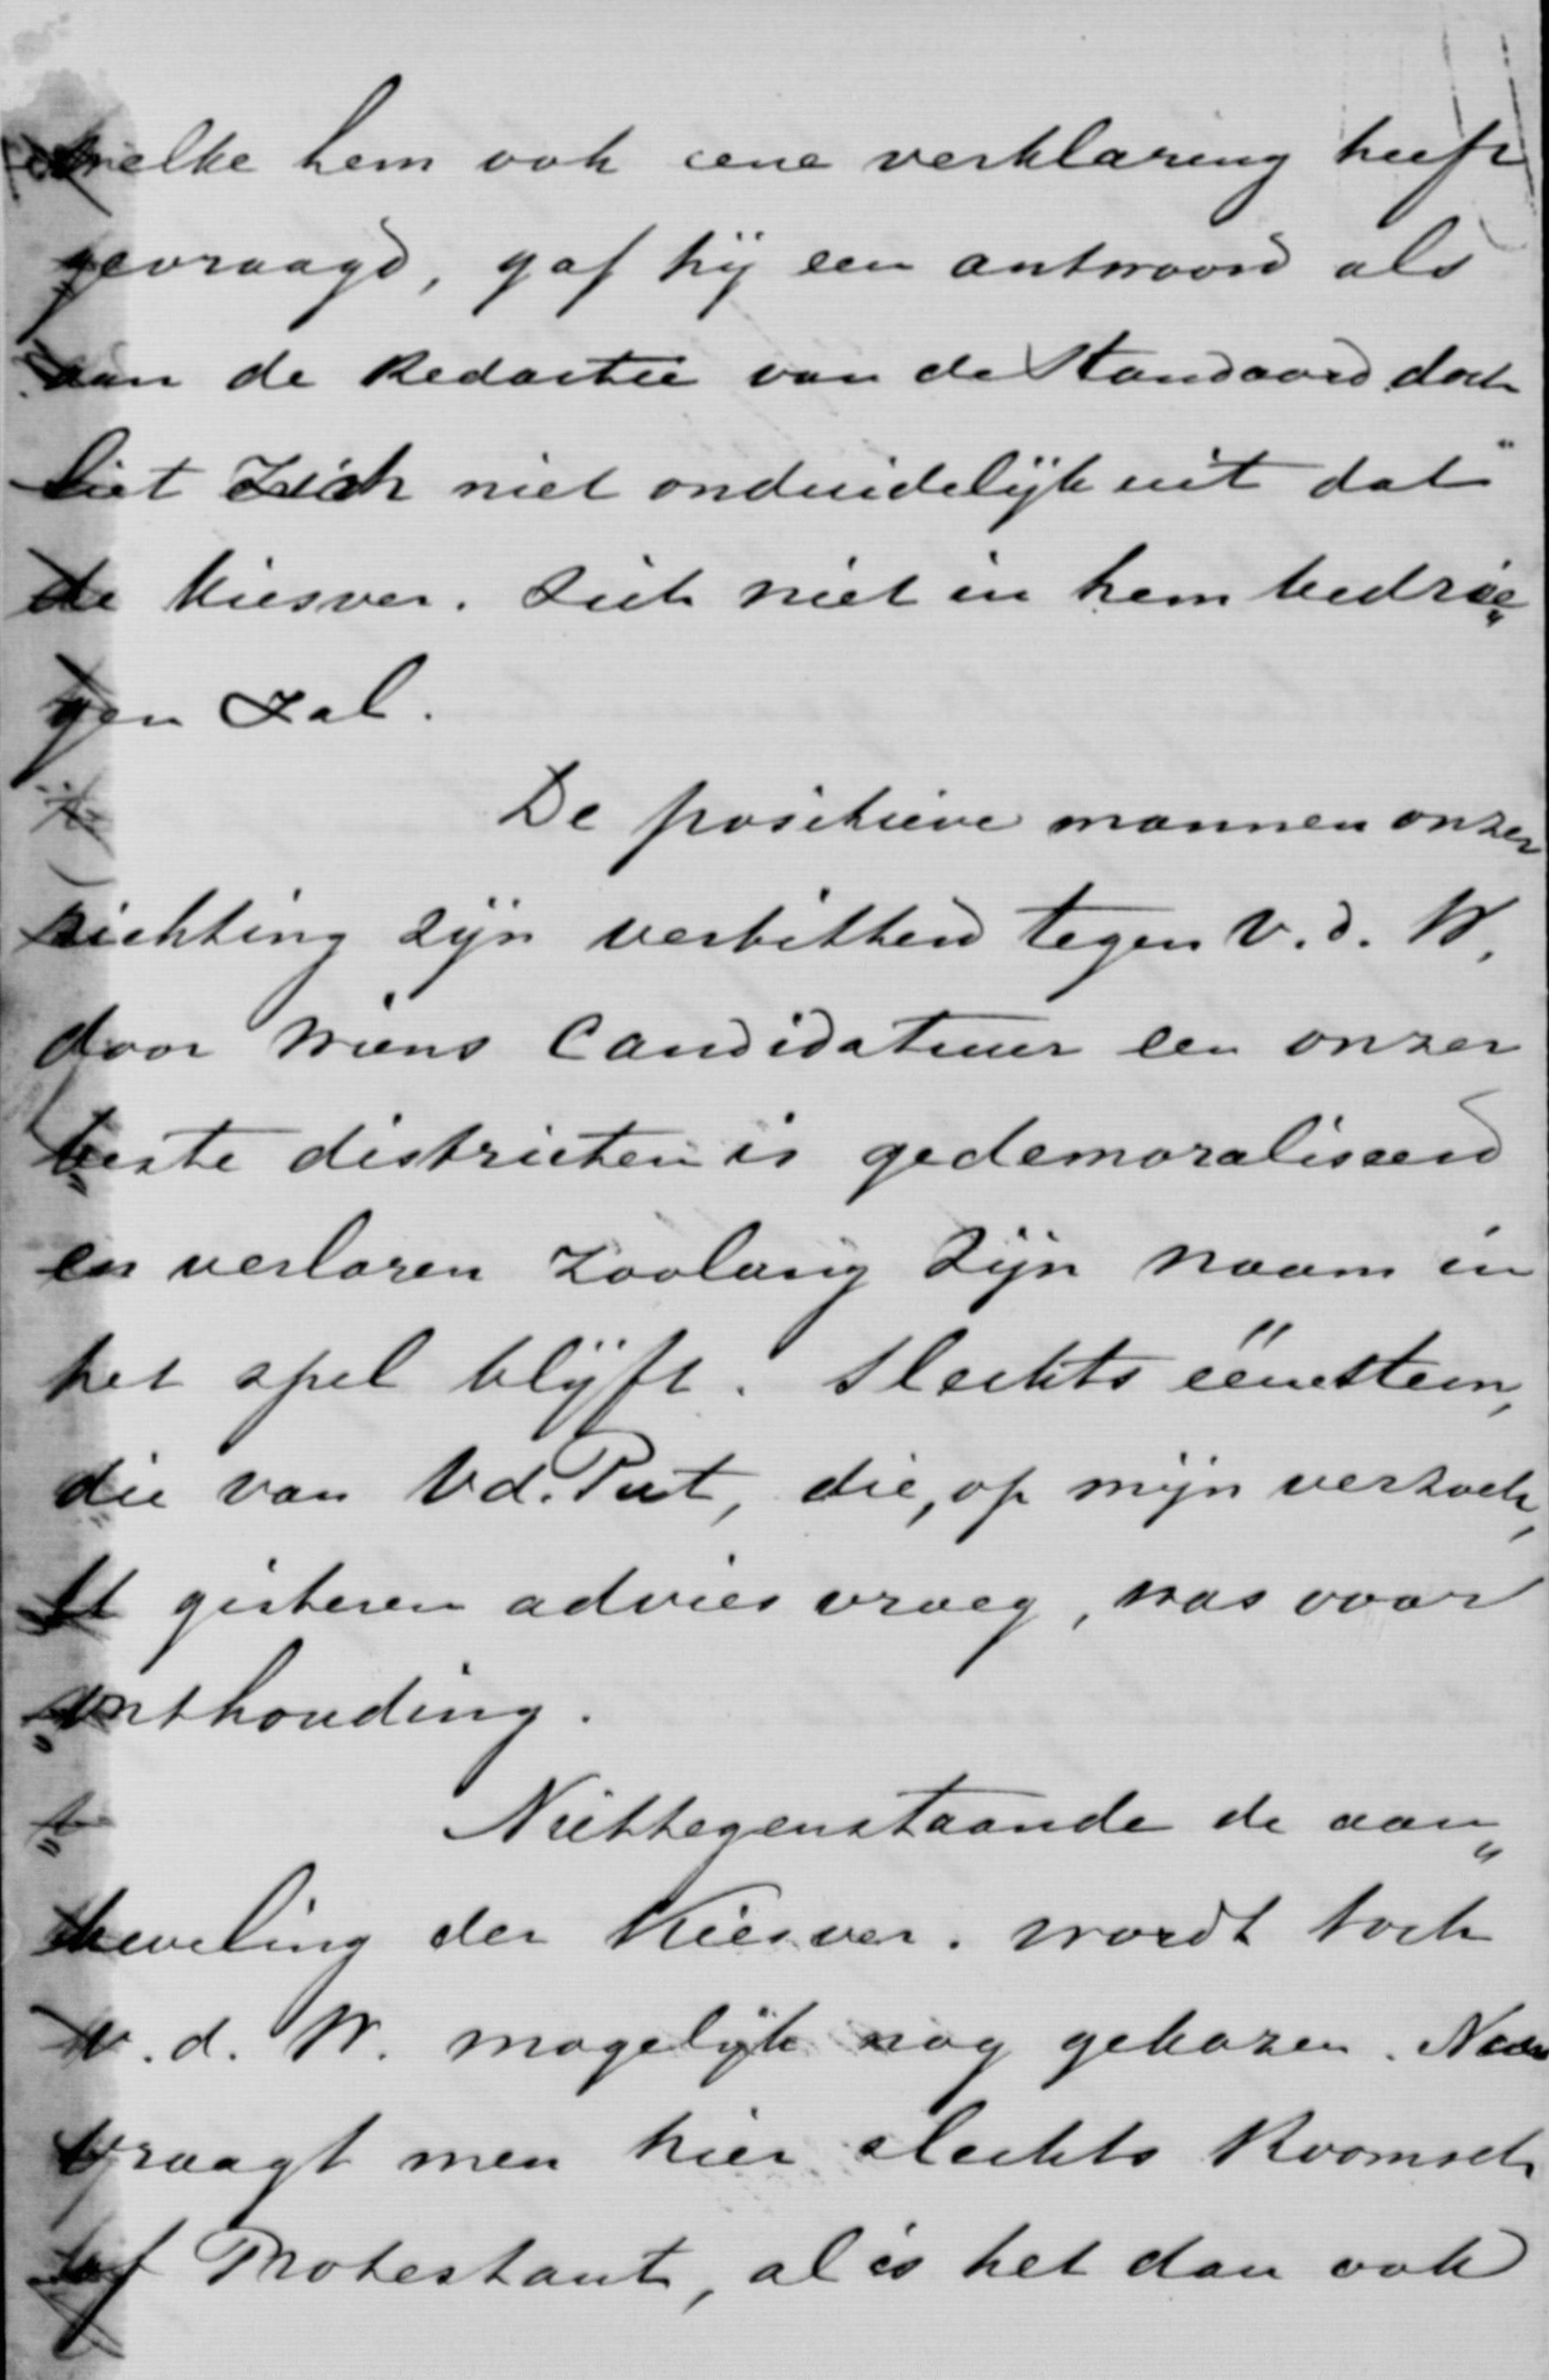 welke hem ook eene verklaring heeft
gevraagd, gaf hij een antwoord als
aan de Redactie van de Standaard doch
liet zich niet onduidelijk uit dat
de Kiesver. zich niet in hem bedrie„
gen zal.
De positieve mannen onzer
richting zijn verbitterd tegen V. d. W,
door wiens Candidatuur een onzer
beste districten is gedemoraliseerd
en verloren zoolang zijn naam in
het spel blijft. Slechts één stem,
die van Vd. Put, die, op mijn verzoek,
U gisteren advies vroeg, was voor
onthouding.
Niettegenstaande de aan„
beveling der Kiesver. wordt toch
v. d. W. mogelijk nog gekozen.
vraagt men hier slechts Roomsch
of Protestant, al is het dan ook